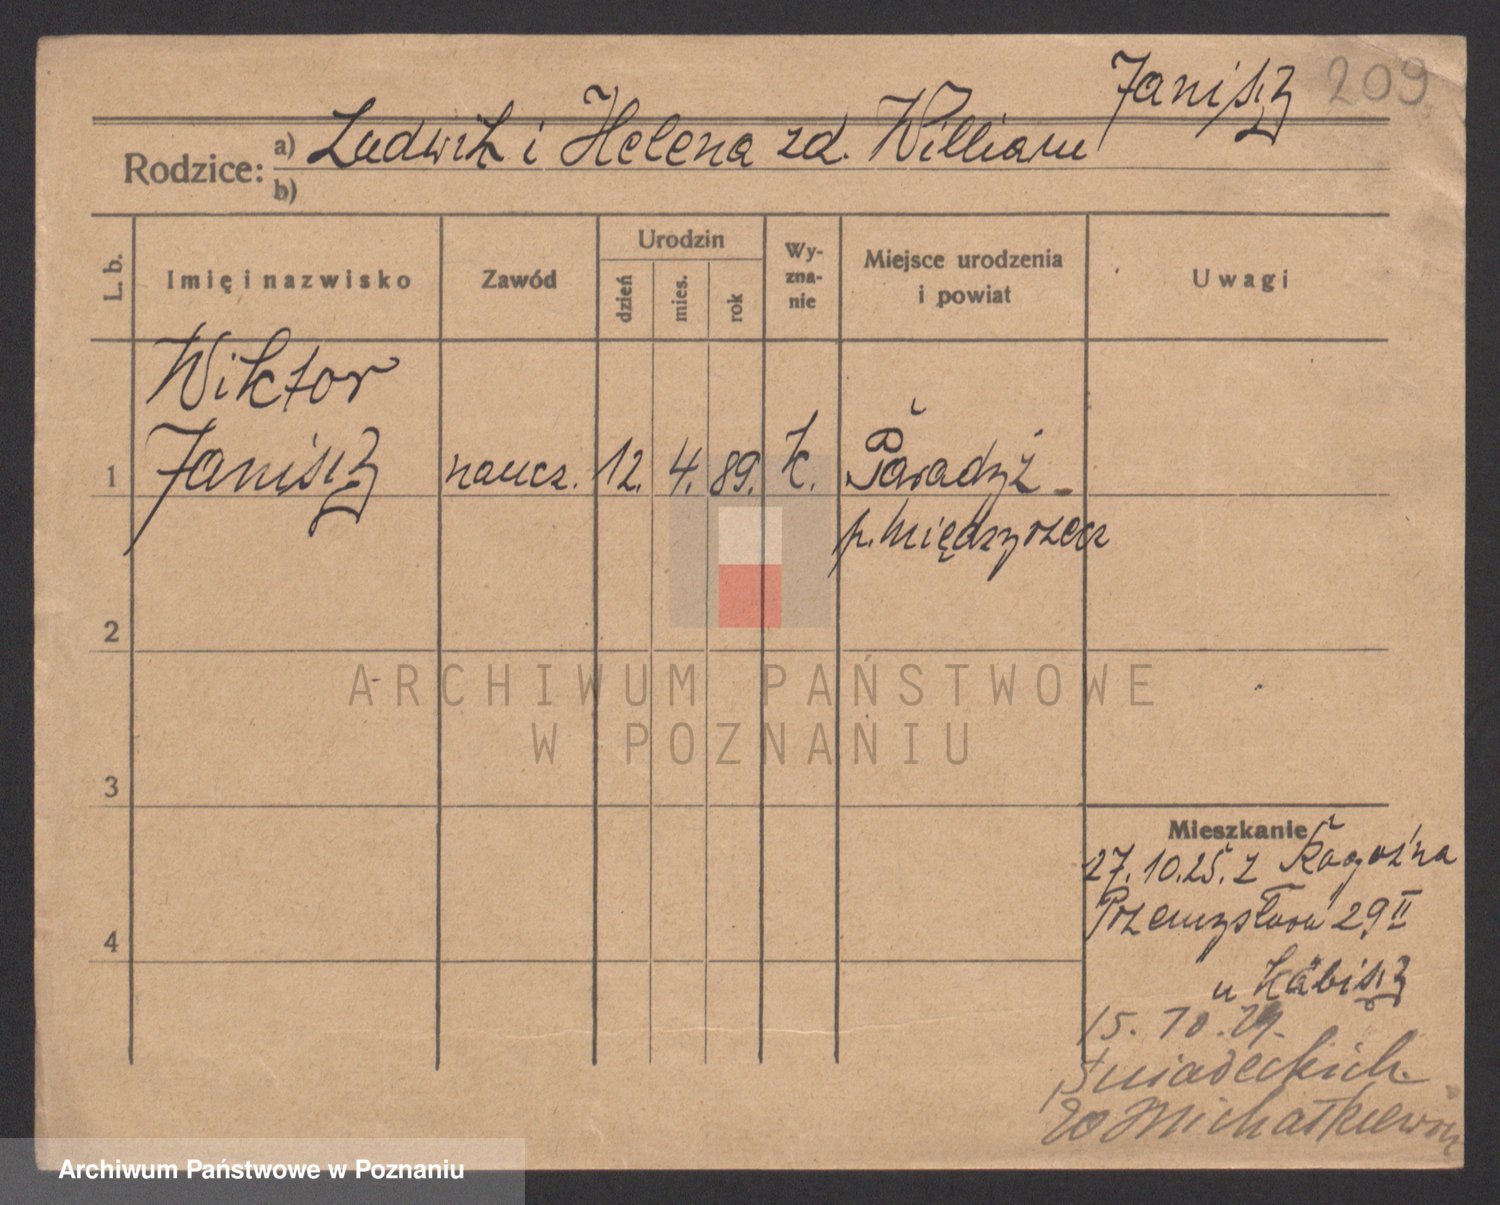 Janisz 209
Rodzice: a) Ludwik i Helena zd. William
b)
L. b.
Imię i nazwisko
Zawód
Urodzin
dzień
mies.
rok
Wy-
zna-
nie
Miejsce urodzenia
i powiat
Uwagi
Wiktor
1 Janisz naucz. 12. 4. 89. k. Paradyż
p. Międzyrzecz
2
3
4
Mieszkanie
27.10.25. z Rogoźna
Przemysłowa 29 II
u Käbisz
15. 10. 29.
Śniadeckich
20 Michałkiewicz
ARCHIWUM PAŃSTWOWE
W POZNANIU
Archiwum Państwowe w Poznaniu